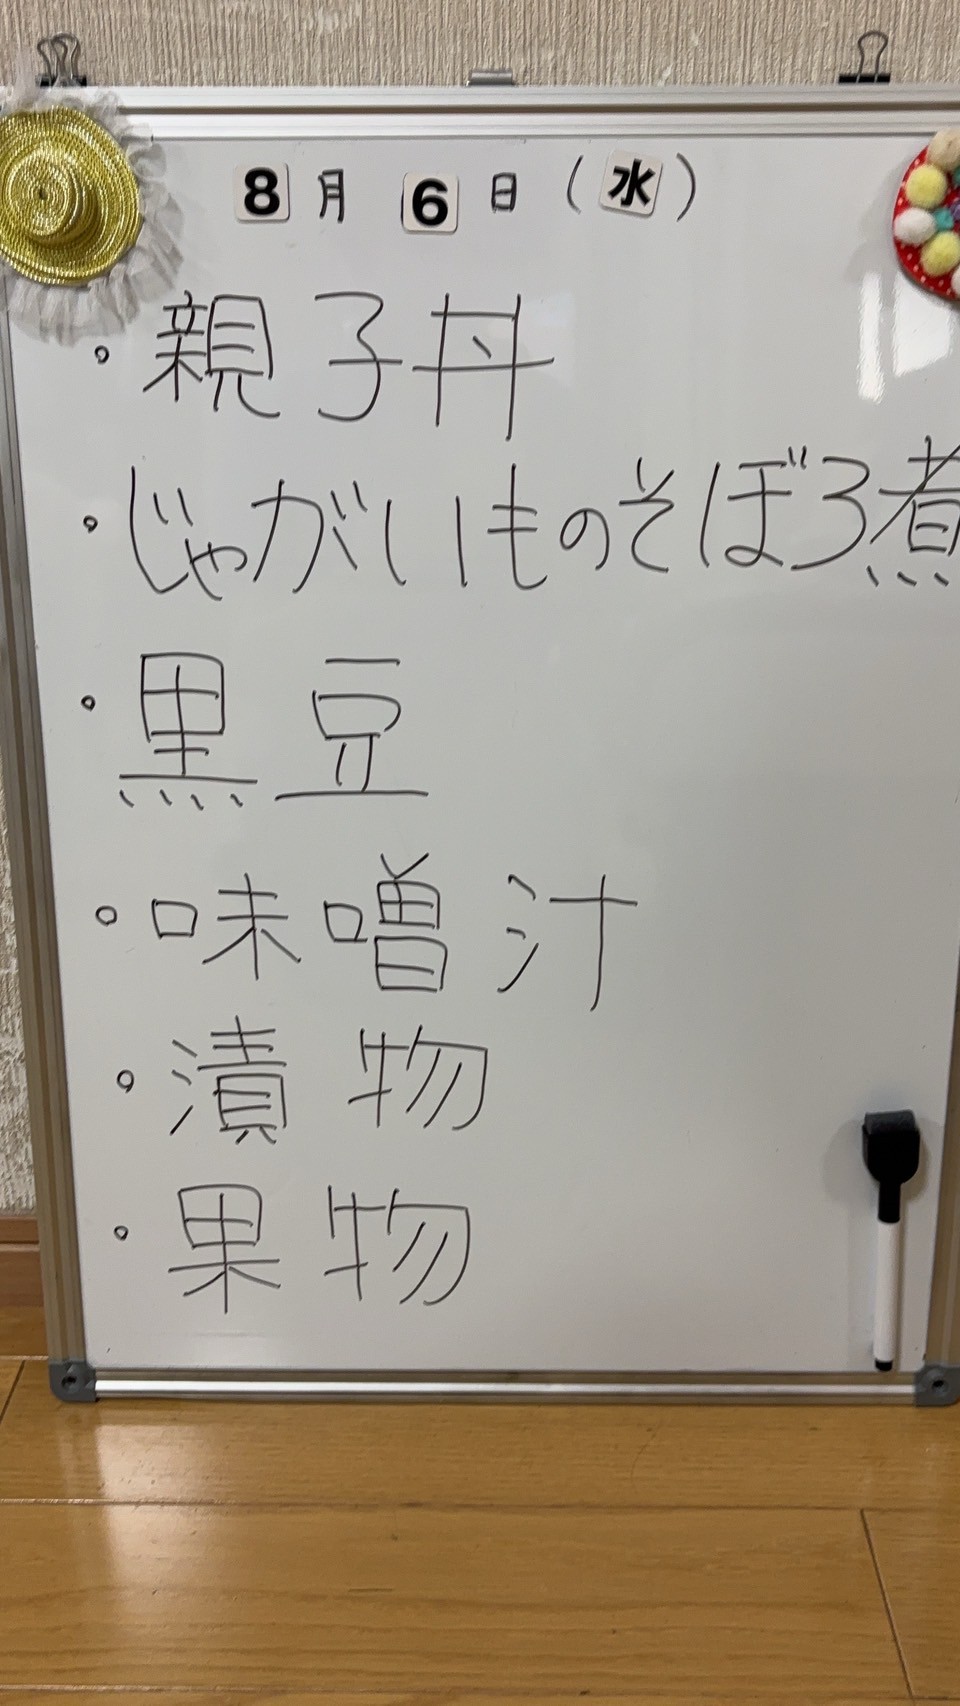 8月6日(水)
・親子丼
・じゃがいものそぼろ煮
・黒豆
・味噌汁
・漬物
・果物